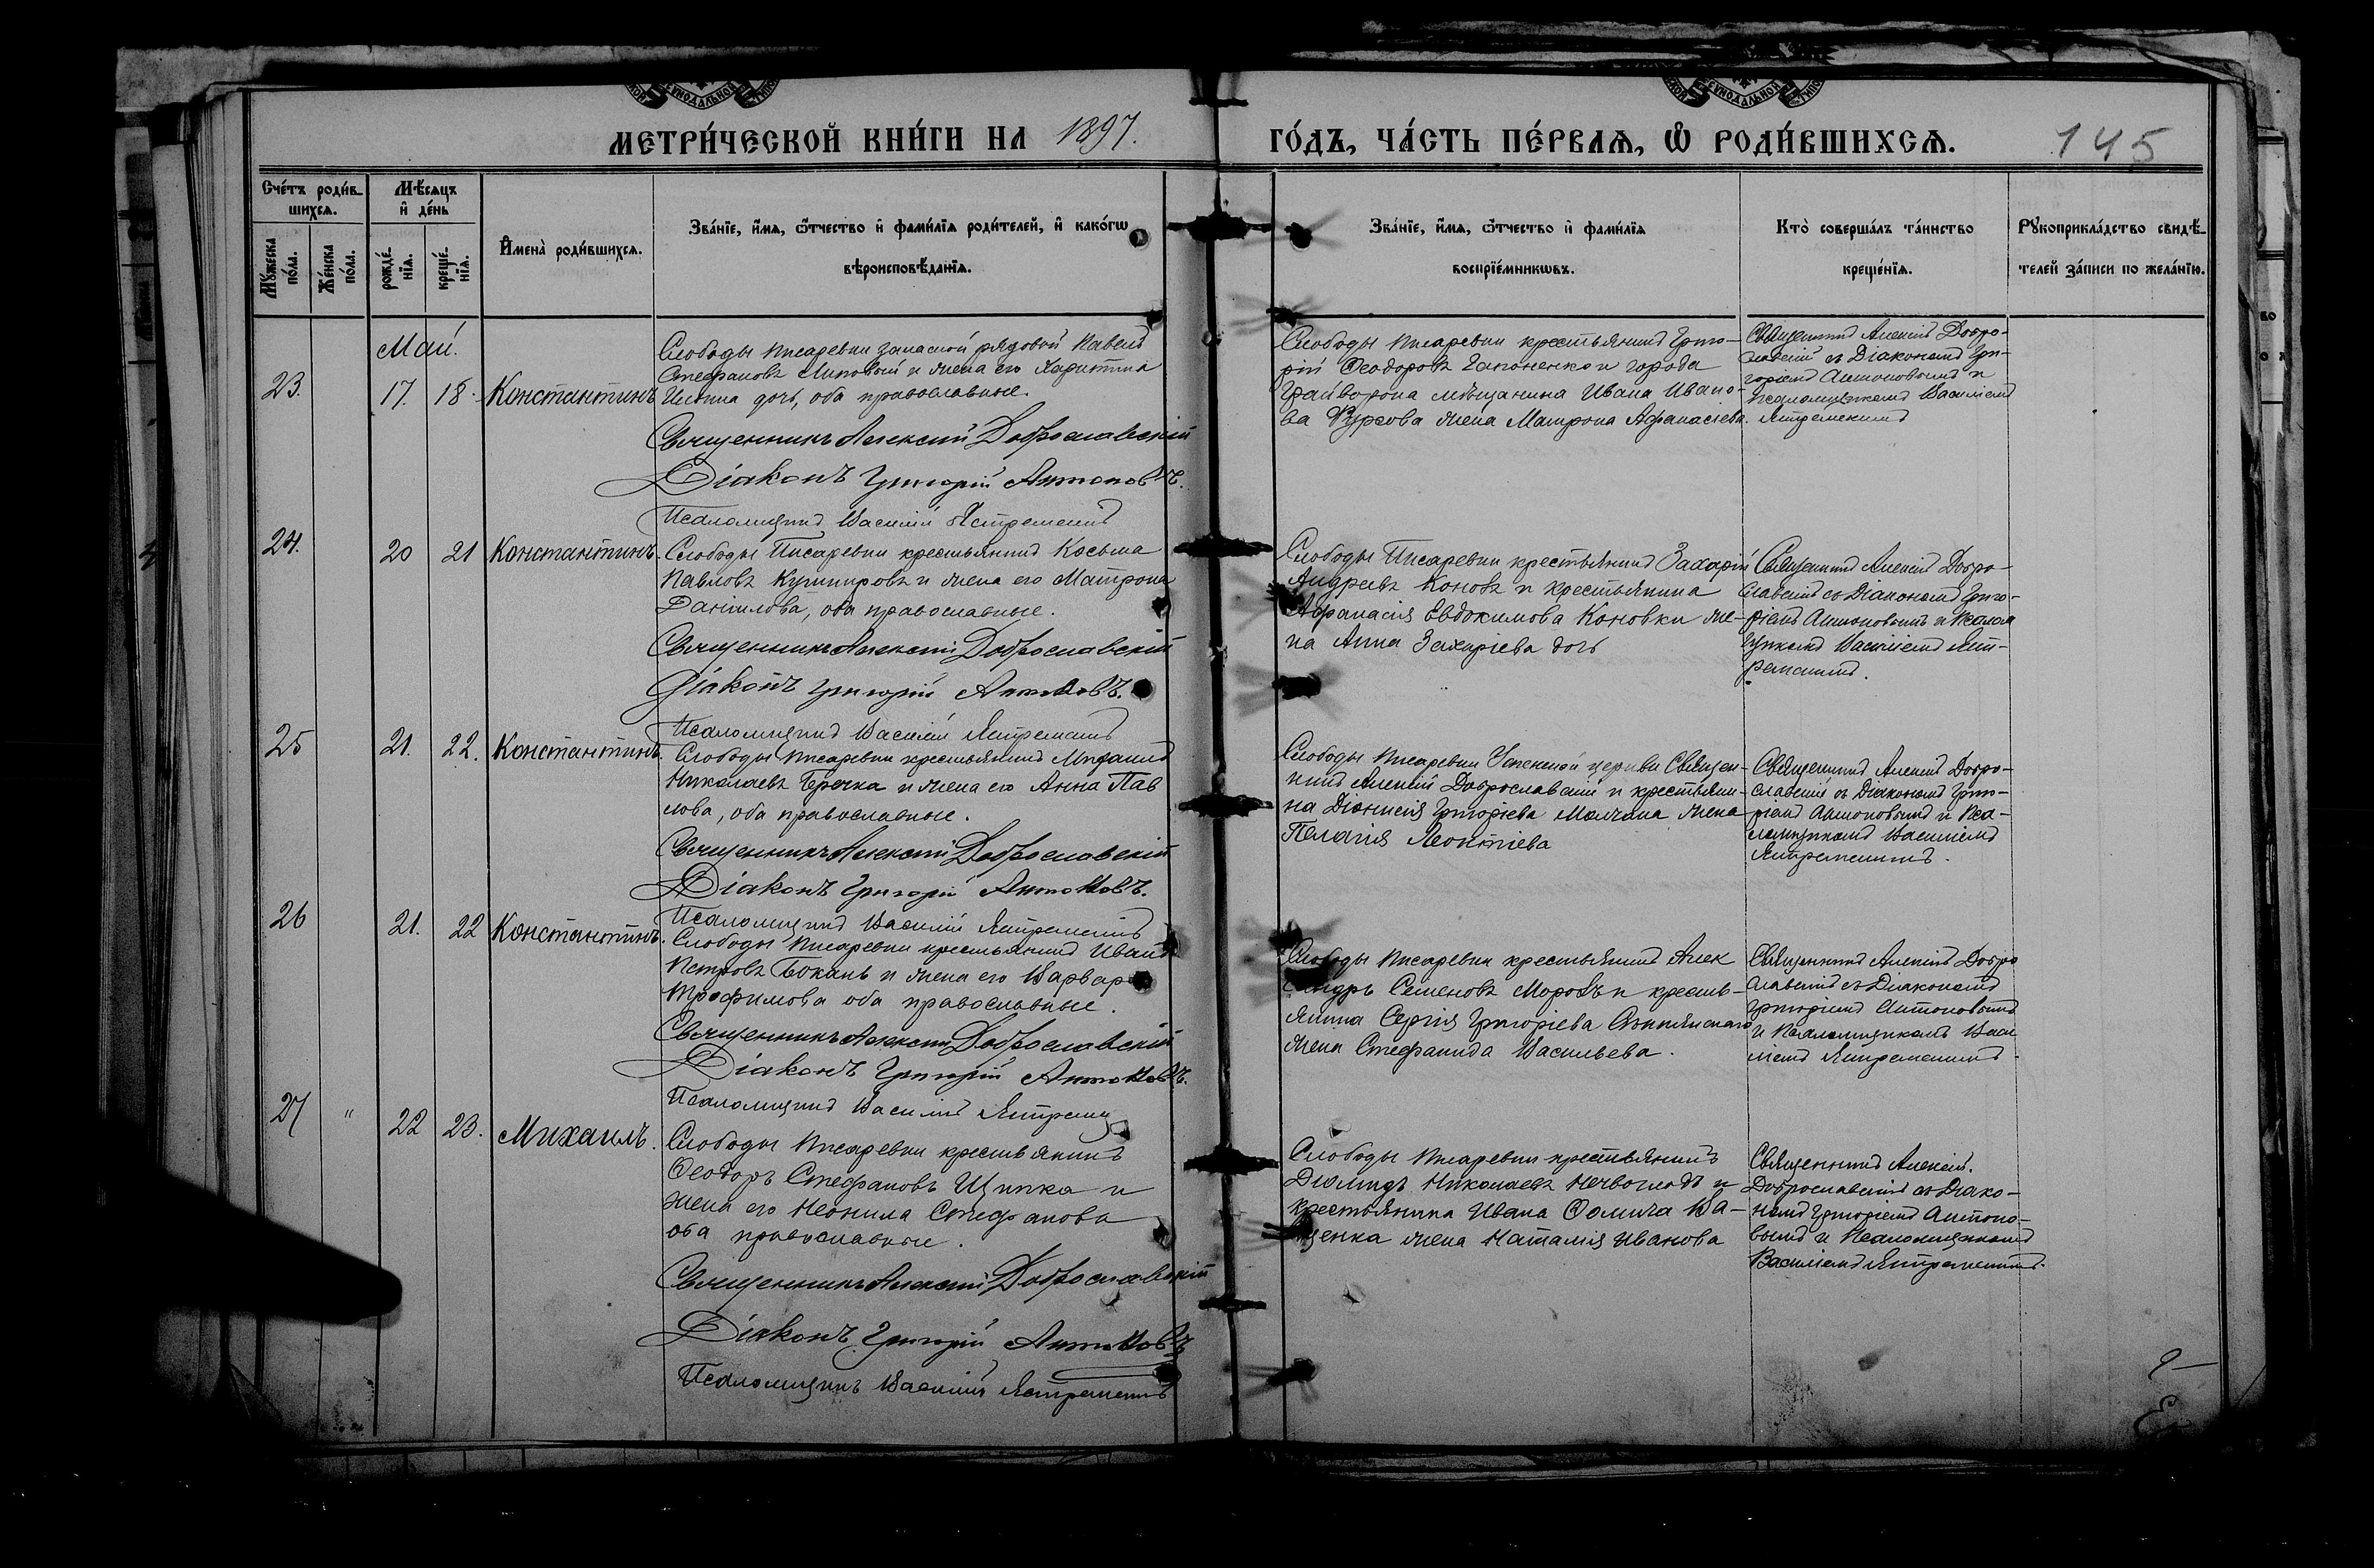 МЕТРИ́ЧЕСКОЙ КНИ́ГИ НА 1897.
ГО́ДЪ, ЧА́СТЬ ПЕ́РВАЯ, Ѿ РОДИ́ВШИХСЯ.
145
Сче́тъ роди́в-
шихся.
Мѣ́сяцъ
и де́нь
Му́жеска
по́ла.
Же́нска
по́ла.
рожде́-
нїя.
креще́-
нїя.
Имена̀ роди́вшихся.
Зва́нїе, и́мя, ѻ҆́тчество и фами́лїя роди́телей, и како́гѡ
вѣроисповѣ́данїя.
Зва́нїе, и́мя, ѻ҆́тчество и фами́лїя
воспрїе́мникѡвъ.
Кто̀ соверша́лъ та́инство
креще́нїя.
Рꙋкоприкла́дство свидѣ́-
телей за́писи по жела́нїю.
Май.
23. 17. 18. Константинъ
Слободы Писаревки запасной рядовой Павелъ
Стефановъ Липовый и жена его Харитина
дочь, оба православные.
Священникъ Алексій Доброславскій
Діаконъ Григорій Антоновъ.
Псаломщикъ Василій Ястремскій
Слободы Писаревки крестьянинъ Григо-
рій Феодоровъ Гапоненко и города
Грайворона мѣщанина Ивана Ивано-
ва Фурсова жена Матрона Афанасіева.
Священникъ Алексій Добро-
славскій съ Діакономъ Гри-
горіемъ Антоновымъ и
Псаломщикомъ Василіемъ
Ястремскимъ
24. 20 21 Константинъ.
Слободы Писаревки крестьянинъ Косьма
Павловъ Кушнировъ и жена его Матрона
Даніилова, оба православные.
Священникъ Алексій Доброславскій
Діаконъ Григорій Антоновъ.
Псаломщикъ Василій Ястремскій
Слободы Писаревки крестьянинъ Захарій
Андреевъ Коновъ и крестьянина
Афанасія Евдокимова Коновки же-
на Анна Захаріева дочь
Священникъ Алексій Добро-
славскій съ Діакономъ Григо-
ріемъ Антоновымъ и Псалом
щикомъ Василіемъ Яст-
ремскимъ.
25 21. 22. Константинъ.
Слободы Писаревки крестьянинъ Митрофанъ
Николаевъ Гречка и жена его Анна Пав
лова, оба православные.
Священникъ Алексій Доброславскій
Діаконъ Григорій Антоновъ.
Псаломщикъ Василій Ястремскій
Слободы Писаревки Успенской церкви Священ-
никъ Алексій Доброславскій и крестьяни-
на Діонисія Григоріева Молчана жена
Пелагія Леонтіева
Священникъ Алексій Добро-
славскій съ Діакономъ Григо-
ріемъ Антоновымъ и Пса-
ломщикомъ Василіемъ
Ястремскимъ.
26 21. 22 Константинъ.
Слободы Писаревки крестьянинъ Иванъ
Петровъ Боканъ и жена его Варвара
Трофимова оба православные.
Священникъ Алексій Доброславскій
Діаконъ Григорій Антоновъ.
Псаломщикъ Василій Ястремск
Слободы Писаревки крестьянинъ Алек
сандръ Семеновъ Морозъ и кресть-
янина Сергія Григоріева
жена Стефанида Васильева.
Священникъ Алексій Добро
славскій съ Діакономъ
Григоріемъ Антоновымъ
и Псаломщикомъ Васи
ліемъ Ястремскимъ.
27 " 22 23. Михаилъ.
Слободы Писаревки крестьянинъ
Феодоръ Стефановъ Щипка и
жена его Неонила Стефанова
оба православные.
Священникъ Алексій Доброславскій
Діаконъ Григорій Антоновъ
Псаломщикъ Василій Ястремскій
Слободы Писаревки крестьянинъ
Діомидъ Николаевъ и
крестьянина Ивана Фомича Ва-
щенка жена Наталія Иванова
Священникъ Алексій
Доброславскій съ Діако-
номъ Григоріемъ Антоно-
вымъ и Псаломщикомъ
Василіемъ Ястремскимъ.